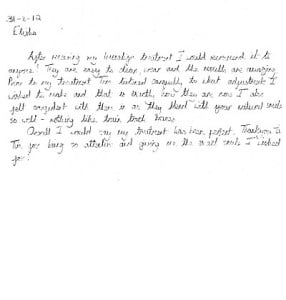 31-2-12
Elisha
After wearing my Invisalign treatment I would recommend it to
anyone! They are easy to clean, wear and the results are amazing
Prior to my treatment Tim listened carefully to what adjustments I
wished to make and that is exactly how they are now I also
felt confident with them in as they blend with your natural smile
so well - nothing like train track braces
Overall I would say my treatment has been perfect. Thankyou to
Tim for being so attentive and giving me the exact smile I wished
for!